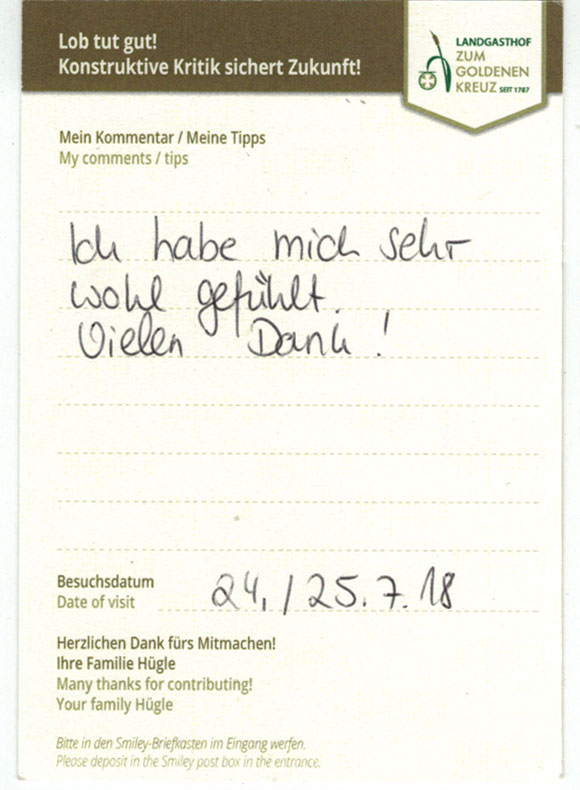 Lob tut gut!
Konstruktive Kritik sichert Zukunft!
LANDGASTHOF
ZUM
GOLDENEN
KREUZ SEIT 1787
Mein Kommentar / Meine Tipps
My comments / tips
Ich habe mich sehr
wohl gefühlt.
Vielen Dank!
Besuchsdatum
Date of visit
24. / 25. 7. 18
Herzlichen Dank fürs Mitmachen!
Ihre Familie Hügle
Many thanks for contributing!
Your family Hügle
Bitte in den Smiley-Briefkasten im Eingang werfen.
Please deposit in the Smiley post box in the entrance.